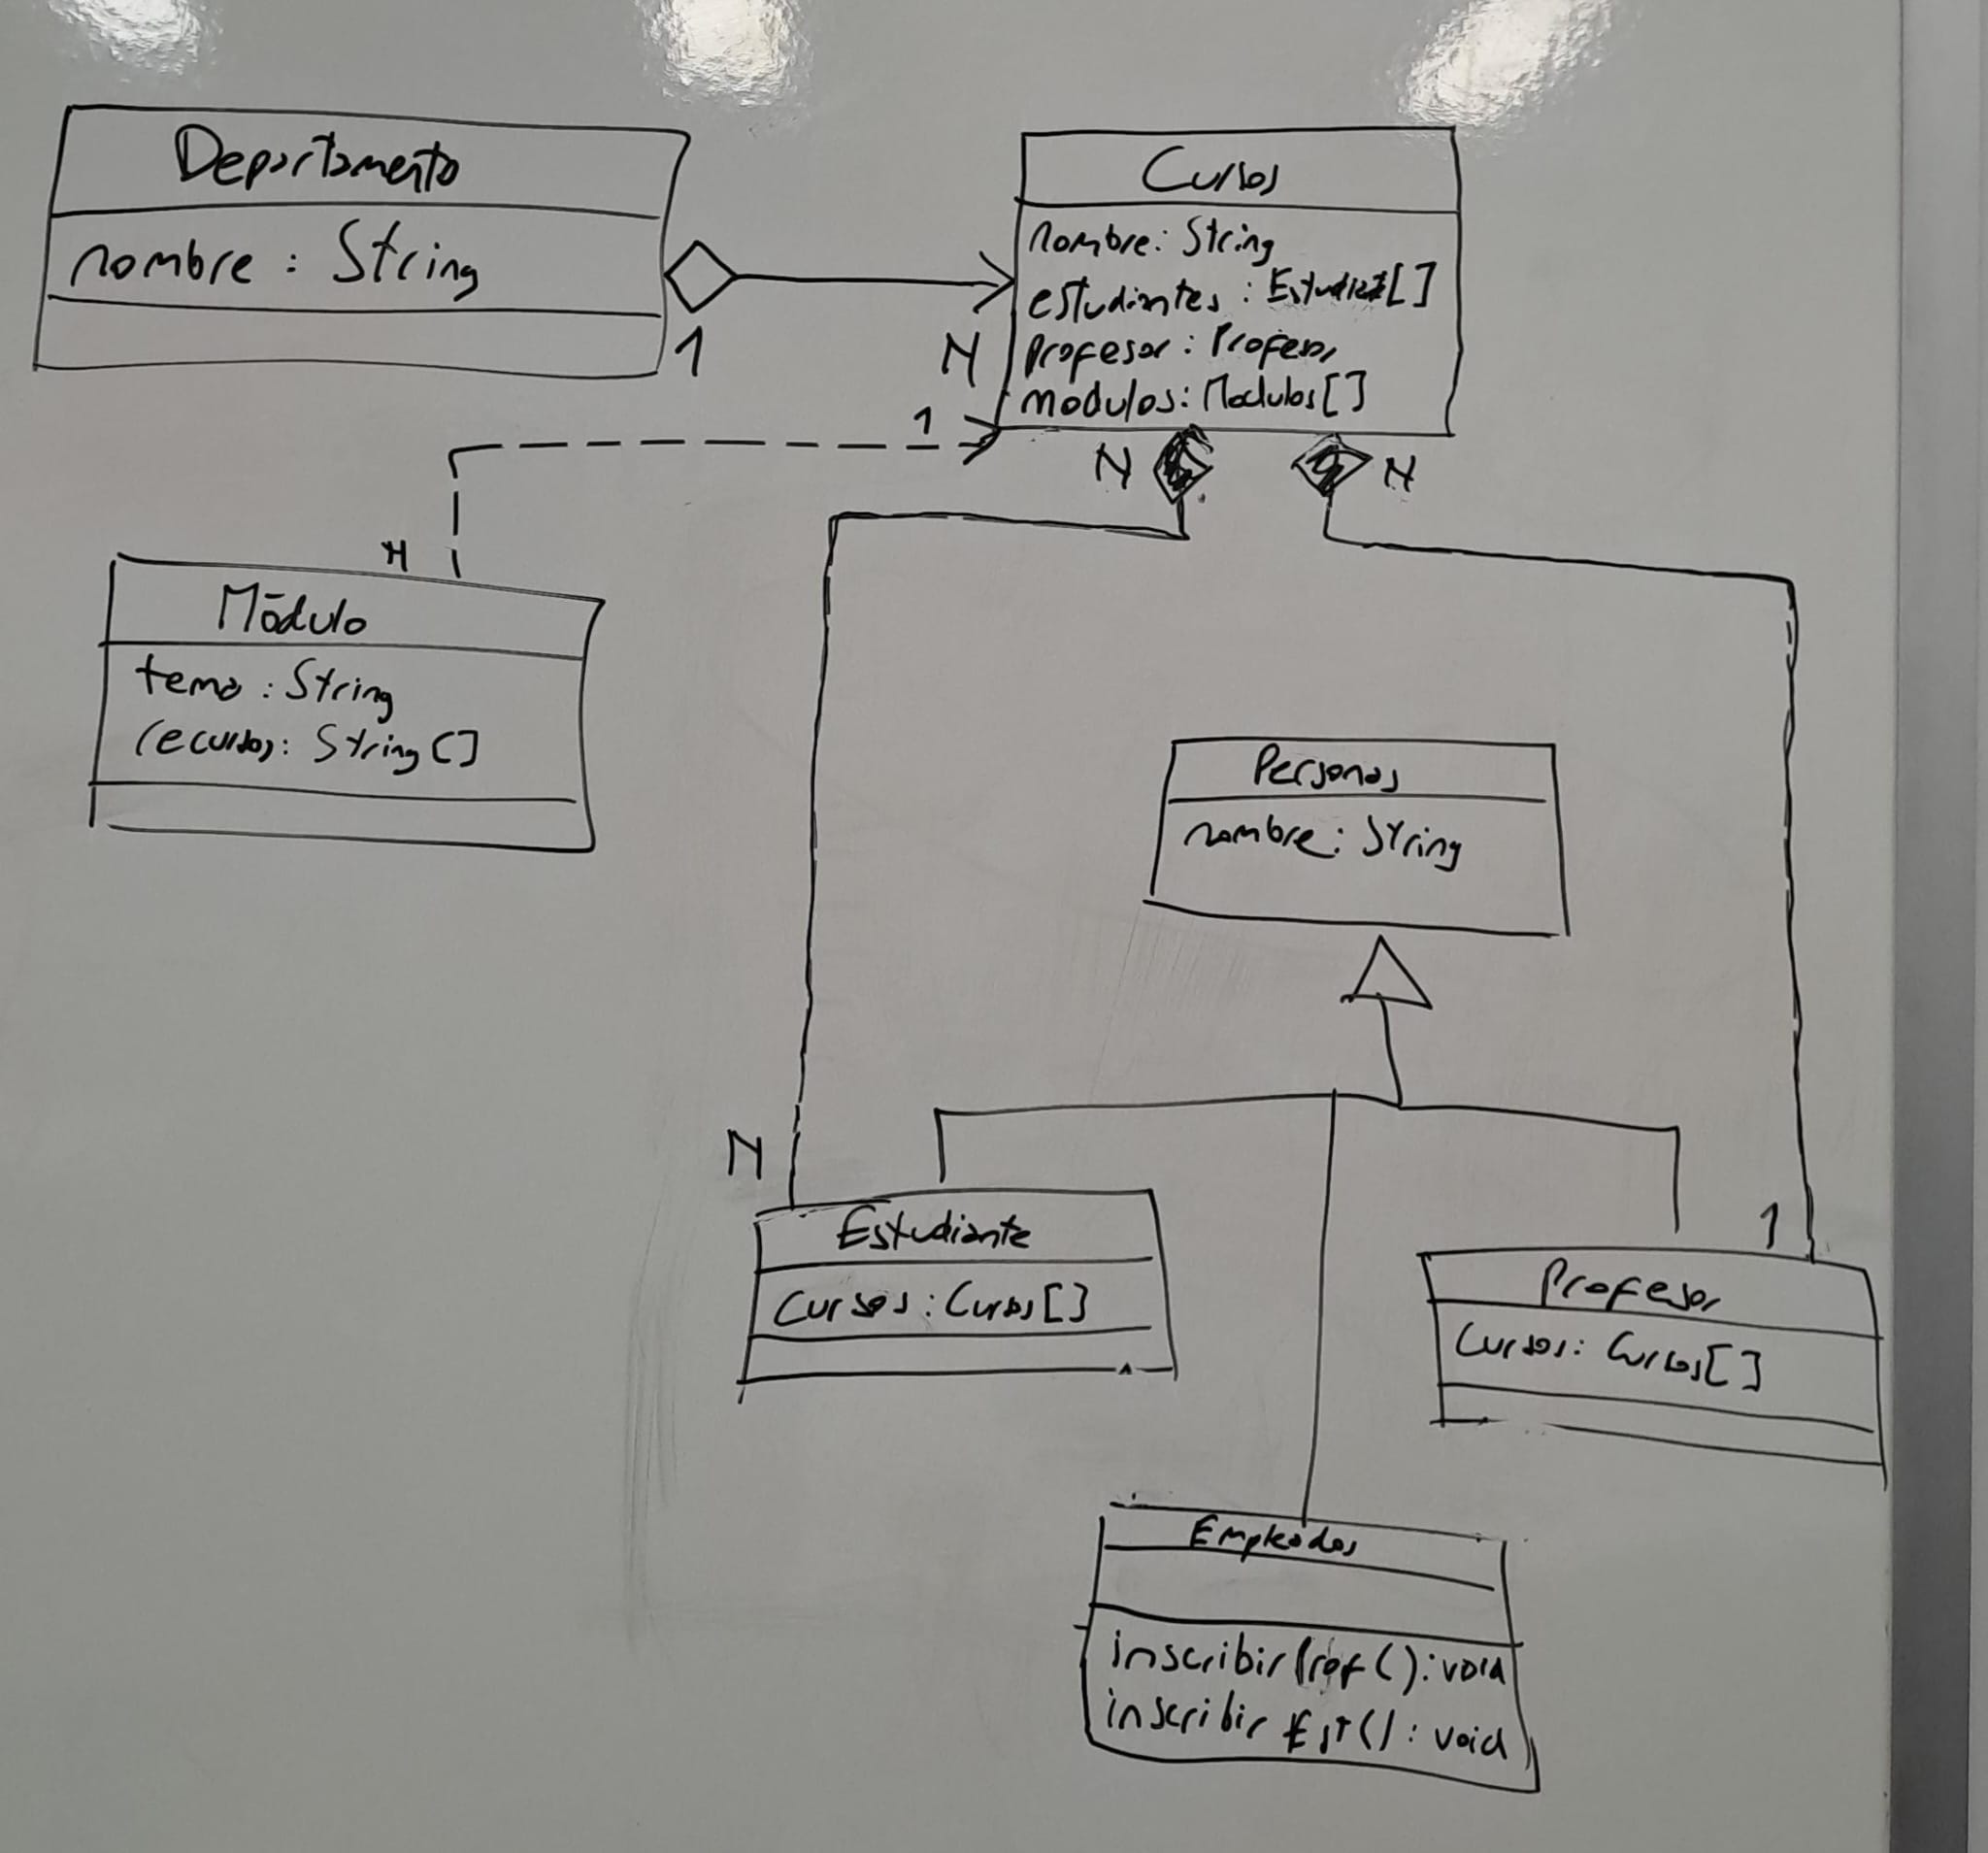 Departamento
nombre : String
1
N
Cursos
nombre: String
estudiantes : Estudiante[]
profesor : Profesor
modulos: Modulos[]
1
N
N
N
Módulo
tema : String
recursos: String[]
Personas
nombre: String
N
1
Estudiante
Cursos : Cursos[]
Profesor
Cursos: Cursos[]
Empleados
inscribir Prof(): void
inscribir Est(): void